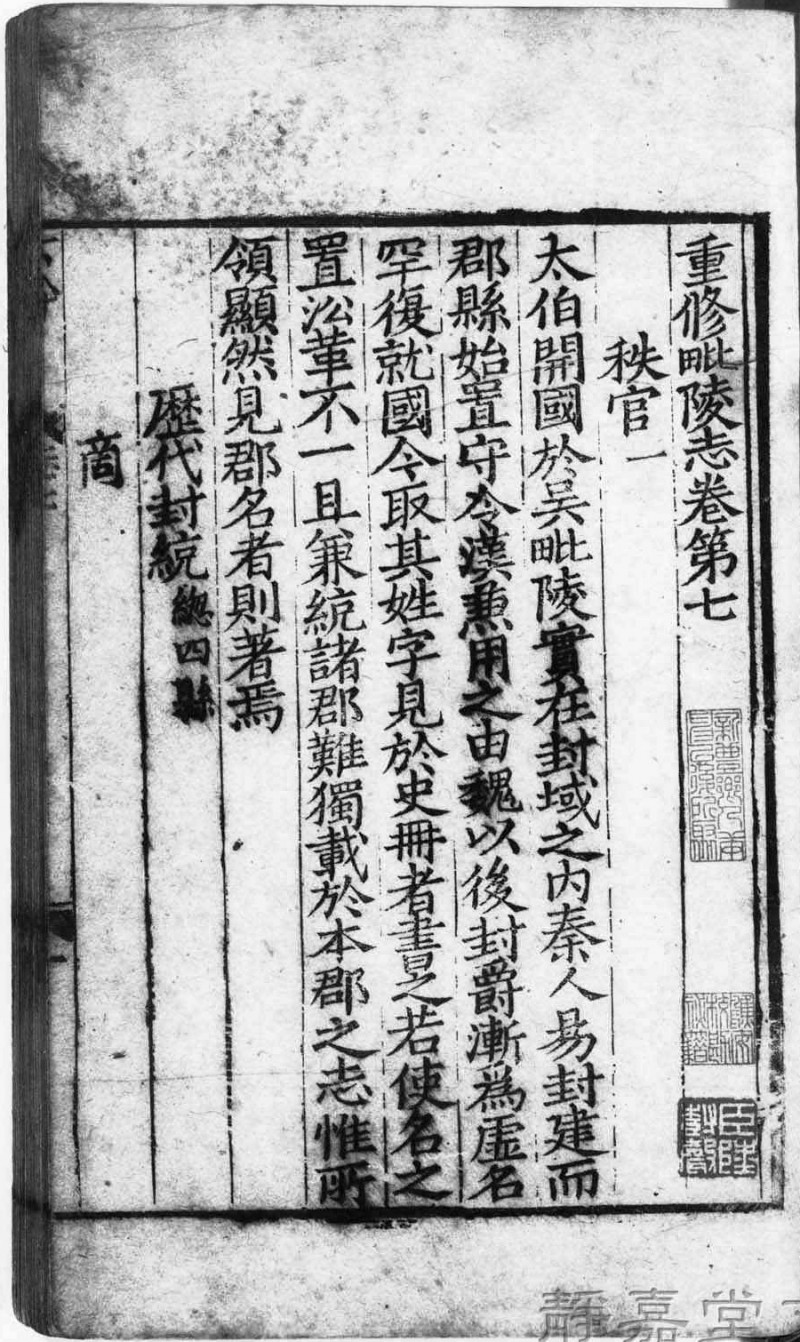 重修毗陵志卷第七
秩官一
太伯開國於吳毗陵實在封域之内秦人易封建而
郡縣始置守令漢兼用之由魏以後封爵漸爲虛名
罕復就國今取其姓字見於史冊者書之若使名之
置沿革不一且兼統諸郡難獨載於本郡之志惟所
領顯然見郡名者則著焉
歷代封統總四縣
商
臣陸
靜嘉堂文